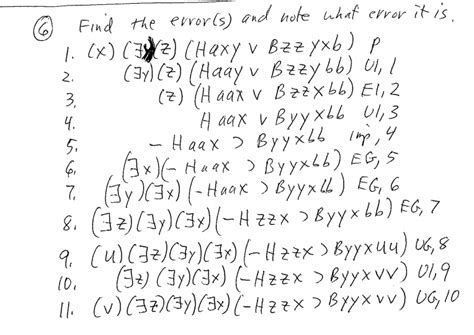 ⑥ Find the error(s) and note what error it is.
1. (x) (∃y)(z) (Haxy v Bzzyxb) P
2. (∃y)(z) (Haay v Bzzybb) UI, 1
3. (z) (Haax v Bzzxbb) EI, 2
4. Haax v Byyxbb UI, 3
5. - Haax ⊃ Byyxbb imp, 4
6. (∃x)(- Haax ⊃ Byyxbb) EG, 5
7. (∃y)(∃x)(-Haax ⊃ Byyxbb) EG, 6
8. (∃z)(∃y)(∃x)(-Hzzx ⊃ Byyxbb) EG, 7
9. (u)(∃z)(∃y)(∃x)(-Hzzx ⊃ Byyxuu) UG, 8
10. (∃z)(∃y)(∃x)(-Hzzx ⊃ Byyxvv) UI, 9
11. (v)(∃z)(∃y)(∃x)(-Hzzx ⊃ Byyxvv) UG, 10